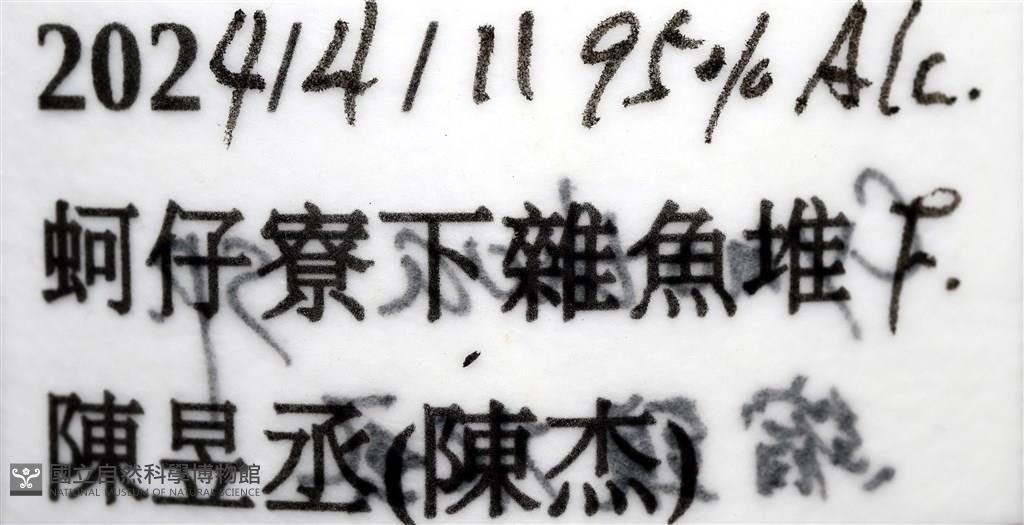 2024/4/11 95% Alc.
蚵仔寮下雜魚堆 P.
陳昱丞(陳杰)
國立自然科學博物館
NATIONAL MUSEUM OF NATURAL SCIENCE